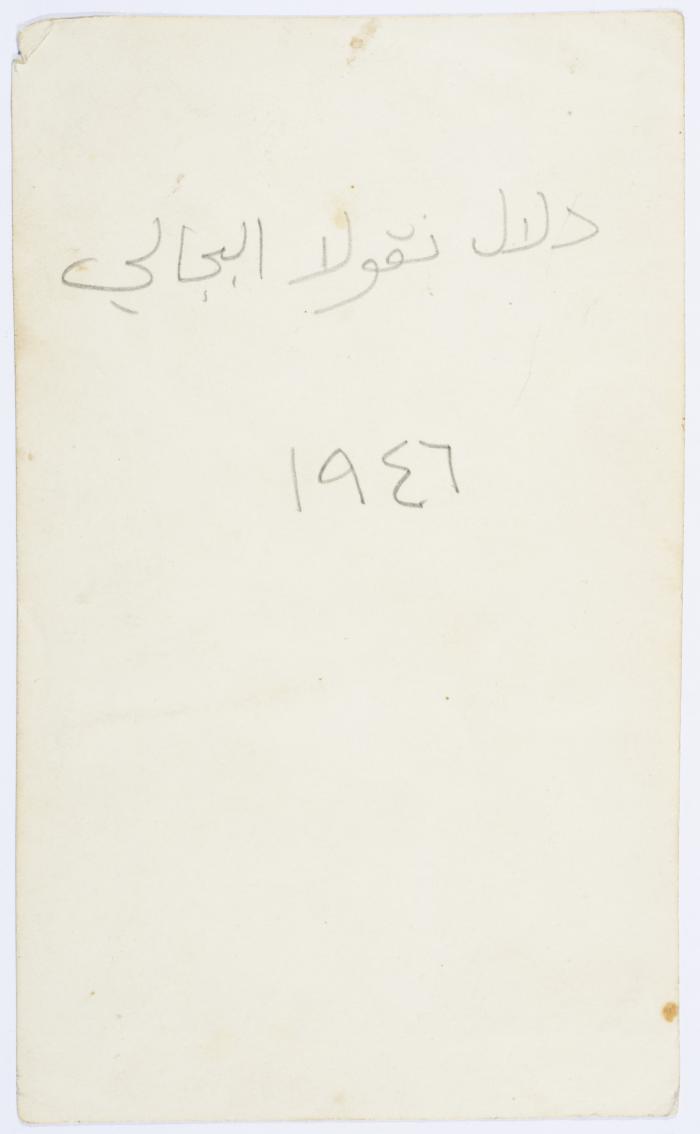 دلال نقولا البجالي
١٩٤٦